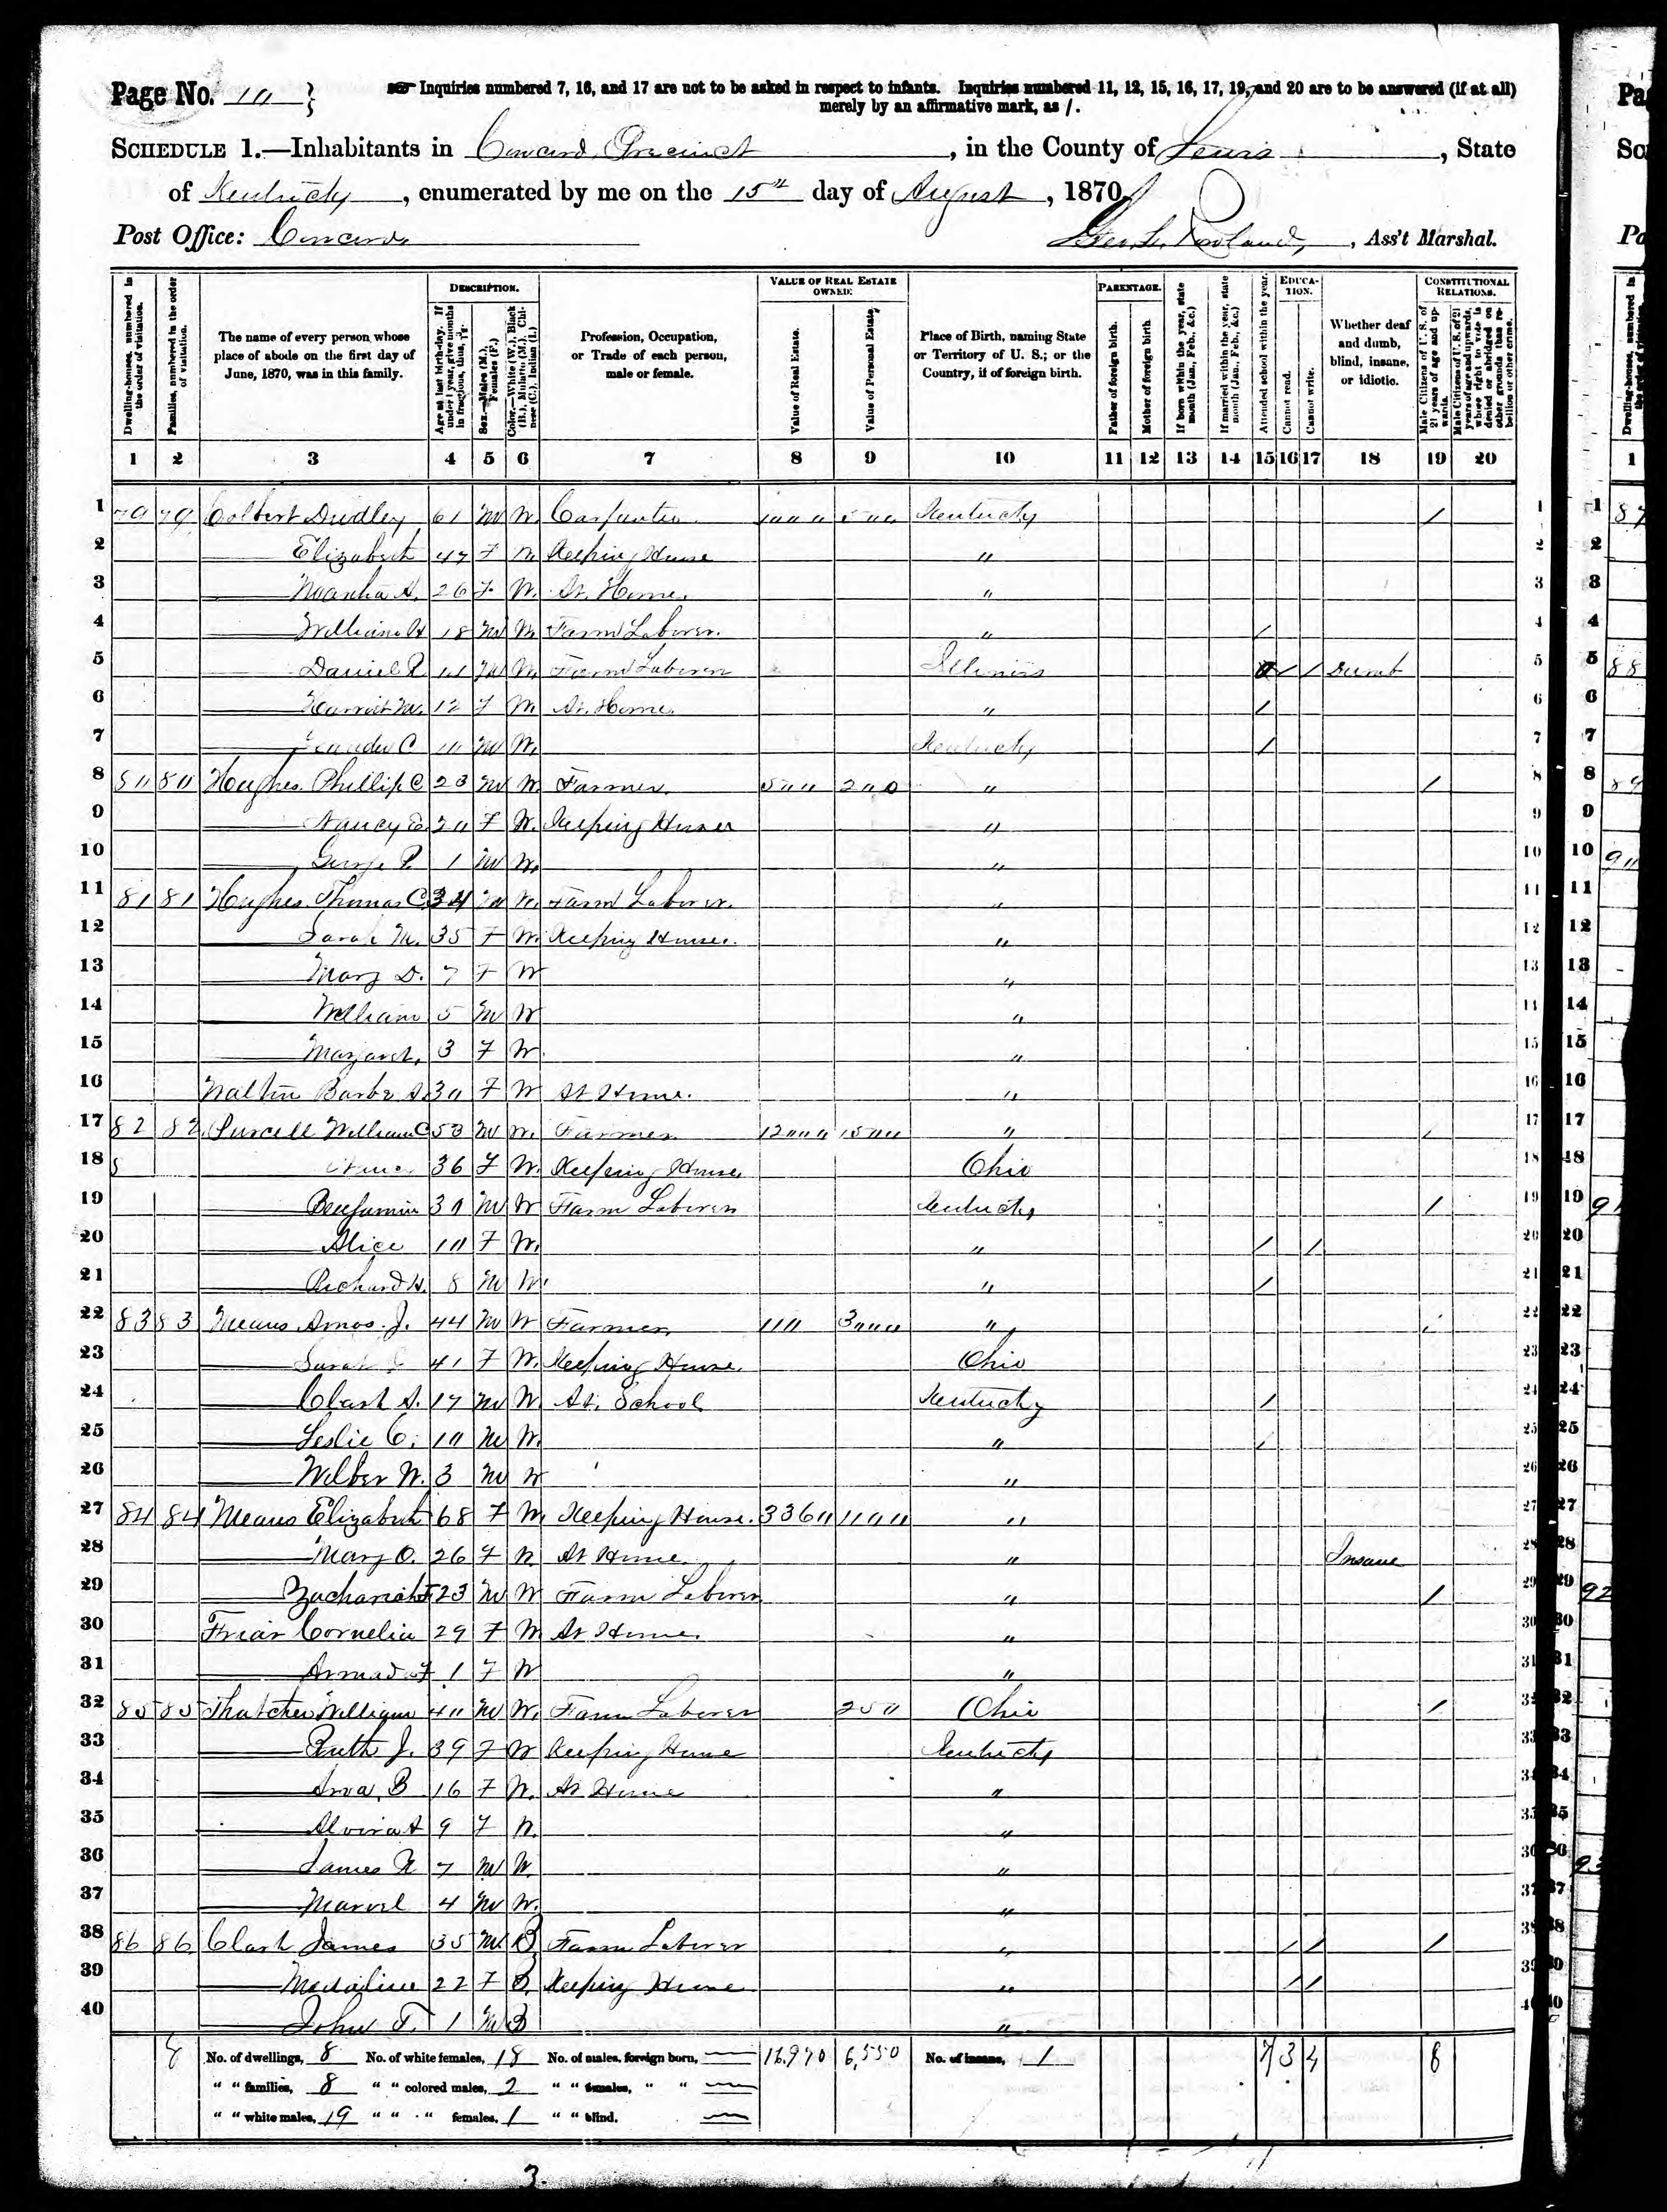 Page No. 10 }
☞ Inquiries numbered 7, 16, and 17 are not to be asked in respect to infants. Inquiries numbered 11, 12, 15, 16, 17, 19, and 20 are to be answered (if at all)
merely by an affirmative mark, as /.
SCHEDULE 1.—Inhabitants in Concord Precinct, in the County of Lewis, State
of Kentucky, enumerated by me on the 15th day of August, 1870.
Post Office: Concord
Geo. L. Rowland, Ass't Marshal.
Dwelling-houses, numbered in the order of visitation.
Families, numbered in the order of visitation.
The name of every person whose place of abode on the first day of June, 1870, was in this family.
DESCRIPTION.
Age at last birth-day. If under 1 year, give months in fractions, thus, 3/12.
Sex.—Males (M.), Females (F.)
Color.—White (W.), Black (B.), Mulatto (M.), Chinese (C.), Indian (I.)
Profession, Occupation, or Trade of each person, male or female.
VALUE OF REAL ESTATE OWNED:
Value of Real Estate.
Value of Personal Estate.
Place of Birth, naming State or Territory of U. S.; or the Country, if of foreign birth.
PARENTAGE.
Father of foreign birth.
Mother of foreign birth.
If born within the year, state month (Jan., Feb., &c.)
If married within the year, state month (Jan., Feb., &c.)
Attended school within the year.
EDUCATION.
Cannot read.
Cannot write.
Whether deaf and dumb, blind, insane, or idiotic.
CONSTITUTIONAL RELATIONS.
Male Citizens of U. S. of 21 years of age and upwards.
Male Citizens of U. S. of 21 years of age and upwards, whose right to vote is denied or abridged on other grounds than rebellion or other crime.
1 2 3 4 5 6 7 8 9 10 11 12 13 14 15 16 17 18 19 20
1 79 79 Colbert Dudley 61 M W. Carpenter 1000 500 Kentucky / 1
2 Elizabeth 47 F W Keeping House " 2
3 Martha A. 26 F W. At Home. " 3
4 William H 18 M W Farm Laborer. " / 4
5 Daniel R 14 M W Farm Laborer Illinois / / Dumb 5
6 Harriet M. 12 F W At Home. " / 6
7 C 10 M W. Kentucky / 7
8 80 80 Hughes Phillip C 23 M W Farmer. 500 200 " / 8
9 Nancy E. 20 F W. Keeping House " 9
10 George P. 1 M W. " 10
11 81 81 Hughes Thomas C. 34 M W. Farm Laborer. " 11
12 Sarah M. 35 F W. Keeping House. " 12
13 Mary D. 7 F W " 13
14 William 5 M W " 14
15 Margaret, 3 F W. " 15
16 Barbr A. 30 F W At Home. " 16
17 82 82 Purcell William C 53 M W. Farmer 12000 1500 " / 17
18 36 F W. Keeping House Ohio 18
19 Benjamin 30 M W Farm Laborer Kentucky / 19
20 Alice 10 F W. " / / 20
21 Richard H. 8 M W. " / 21
22 83 83 Means Amos. J. 44 M W Farmer 3000 " / 22
23 Sarah 41 F W. Keeping House. Ohio 23
24 Clark A. 17 M W. At. School Kentucky / 24
25 Leslie C. 10 M W. " / 25
26 Wilber W. 3 M W " 26
27 84 84 Means Elizabeth 68 F W. Keeping House. 3360 1100 " 27
28 Mary O. 26 F W. At Home. " Insane 28
29 Zachariah F 23 M W Farm Laborer " / 29
30 Friar Cornelia 29 F W. At Home. " 30
31 1 F W " 31
32 85 85 Thatcher William 40 M W. Farm Laborer 250 Ohio / 32
33 Ruth J. 39 F W Keeping House Kentucky 33
34 B 16 F W. At Home " 34
35 Alvira A 9 F W. " 35
36 James 7 M W. " 36
37 4 M W. " 37
38 86 86 Clark James 35 M. B Farm Laborer " / / / 38
39 Madaline 22 F B. Keeping House " / / 39
40 John T. 1 M B " 40
8 No. of dwellings, 8 No. of white females, 18 No. of males, foreign born, — 16,970 6,550 No. of insane, 1 7 3 4 8
" " families, 8 " " colored males, 2 " " females, " " —
" " white males, 19 " " " females, 1 " " blind, —
3.